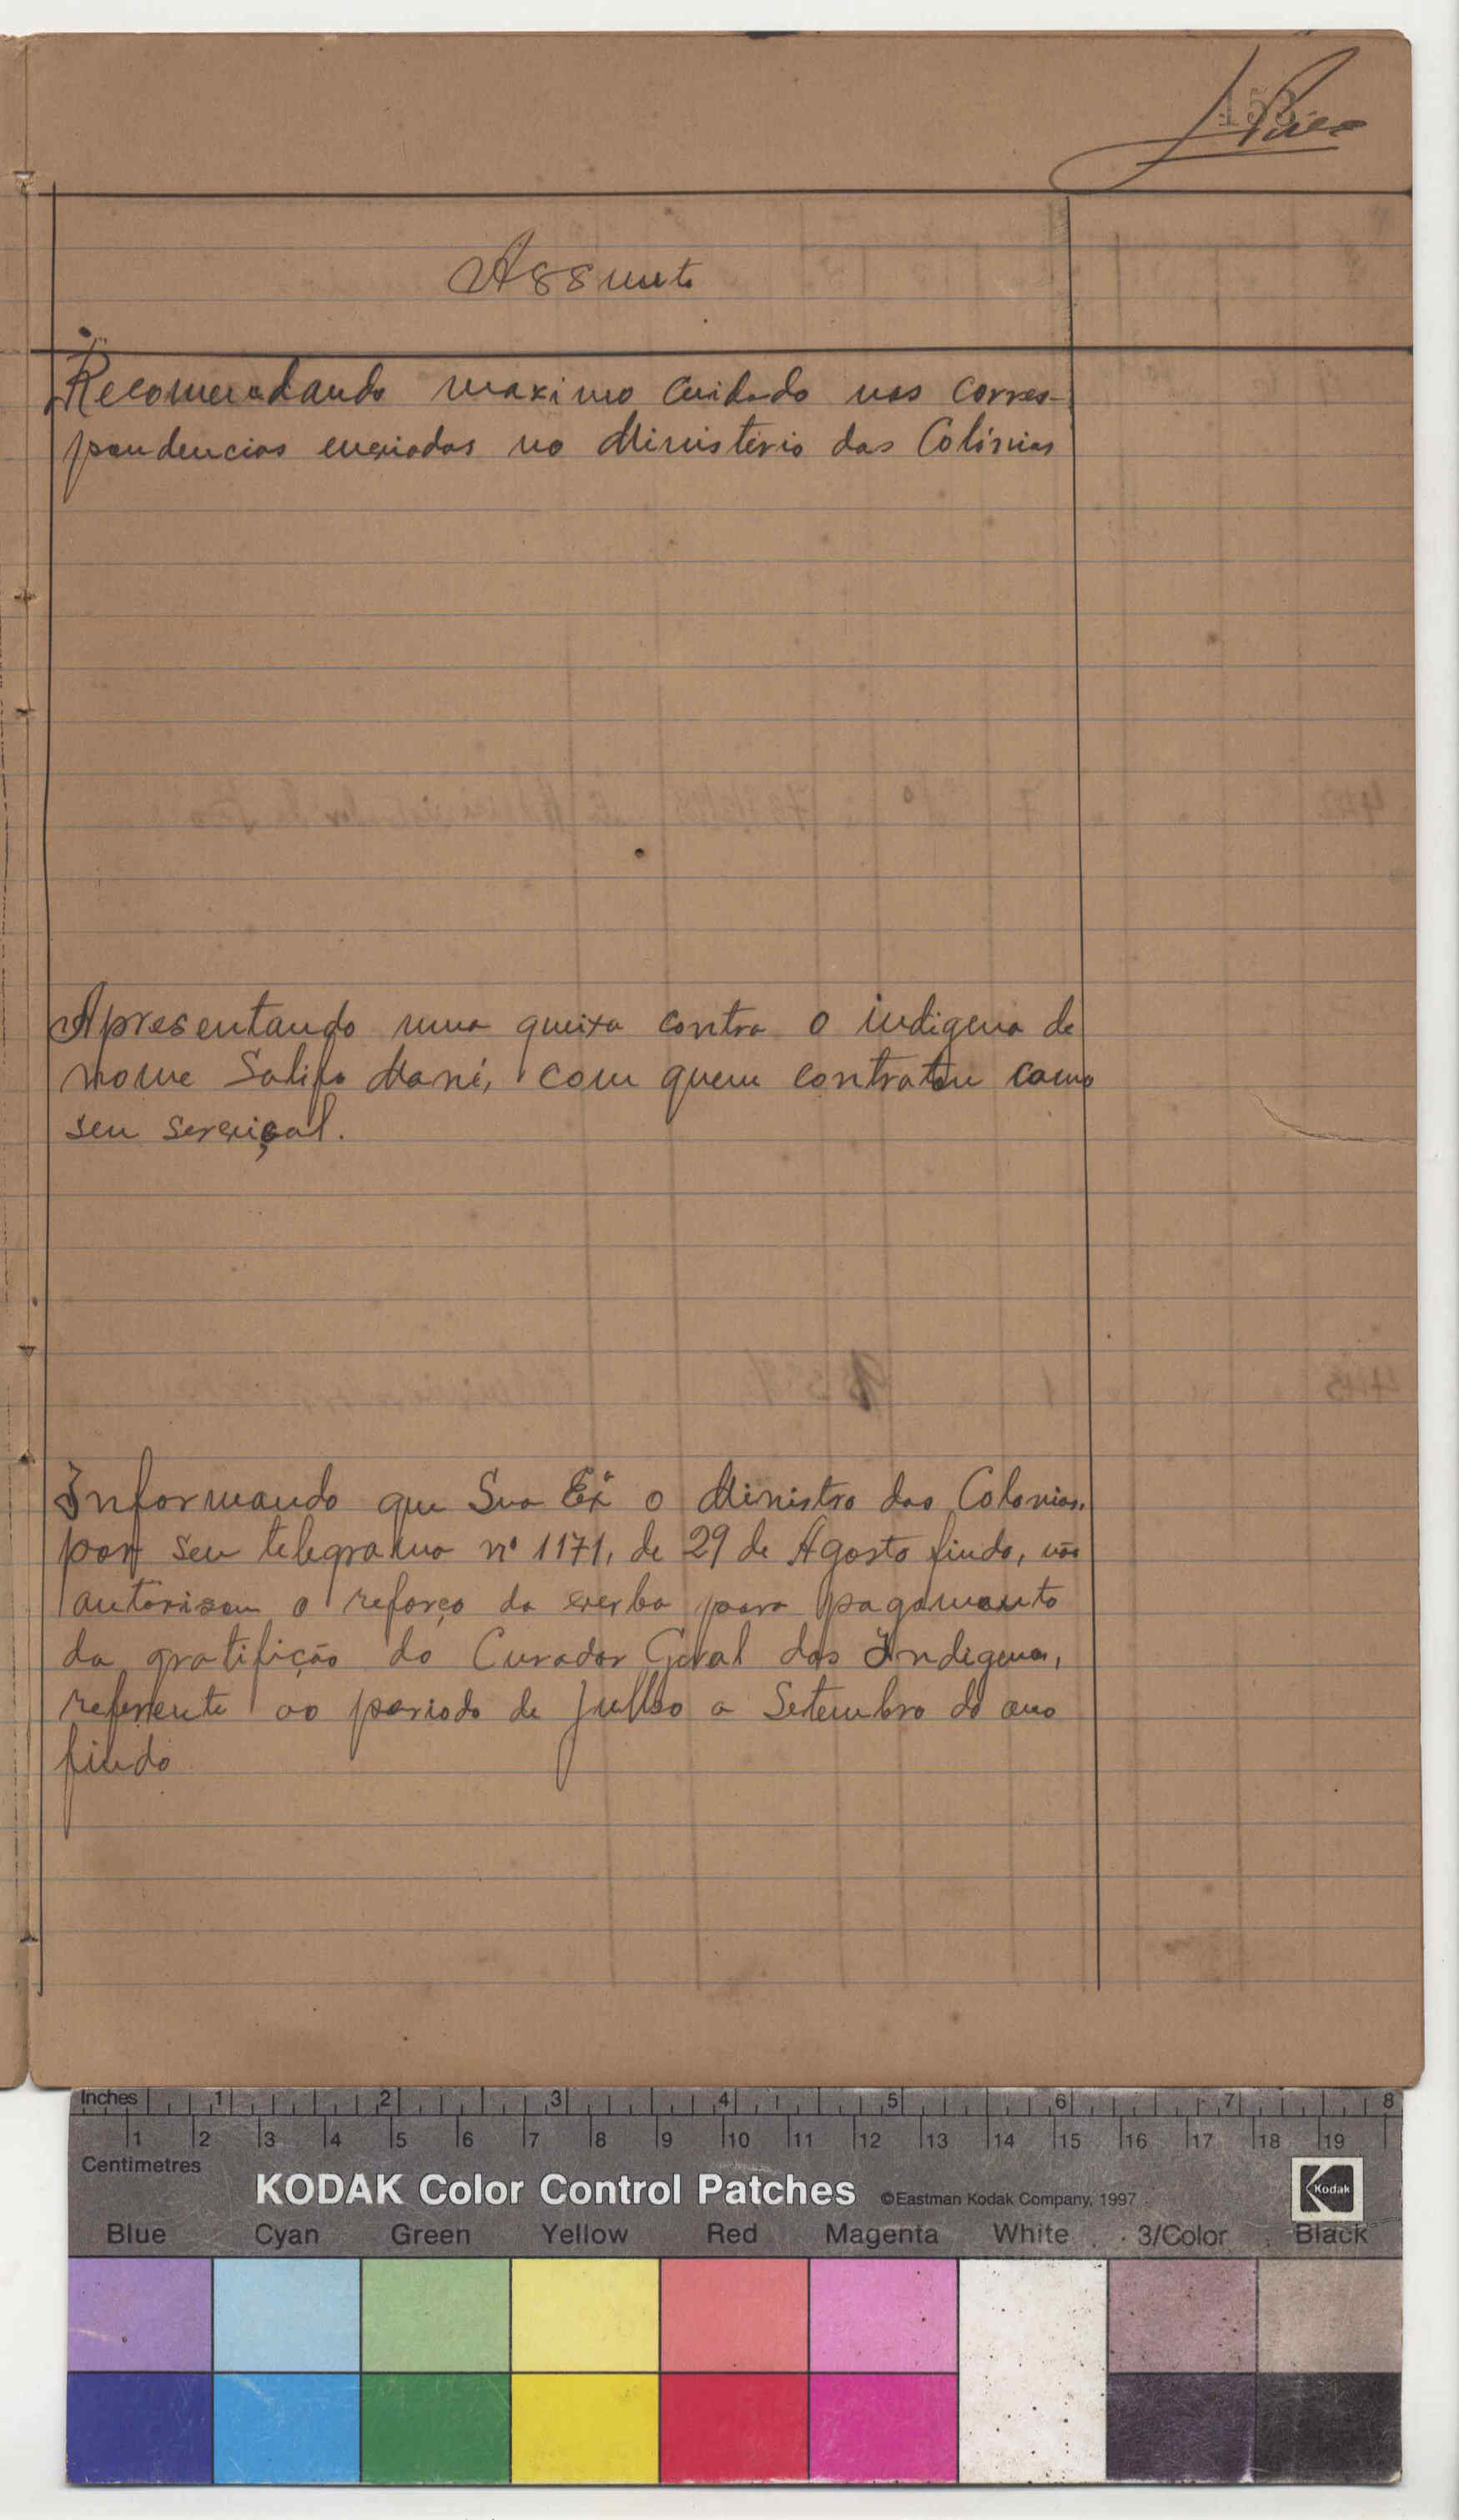 Assunto
Recomendando maximo cuidado nas corres-
pondencias enviadas no Ministério das Colónias
Apresentando uma queixa contra o indigena de
nome Salifo Mané, com quem contratou como
seu serviçal.
Informando que Sua Exª o Ministro das Colonias,
por seu telegrama nº 1171, de 29 de Agosto findo, não
autorisou o reforço da verba para pagamento
da gratifição do Curador Geral dos Indigenas,
referente ao periodo de Julho a Setembro do ano
findo
Inches 1 2 3 4 5 6 7 8
1 2 3 4 5 6 7 8 9 10 11 12 13 14 15 16 17 18 19
Centimetres
KODAK Color Control Patches ©Eastman Kodak Company, 1997 Kodak
Blue Cyan Green Yellow Red Magenta White 3/Color Black